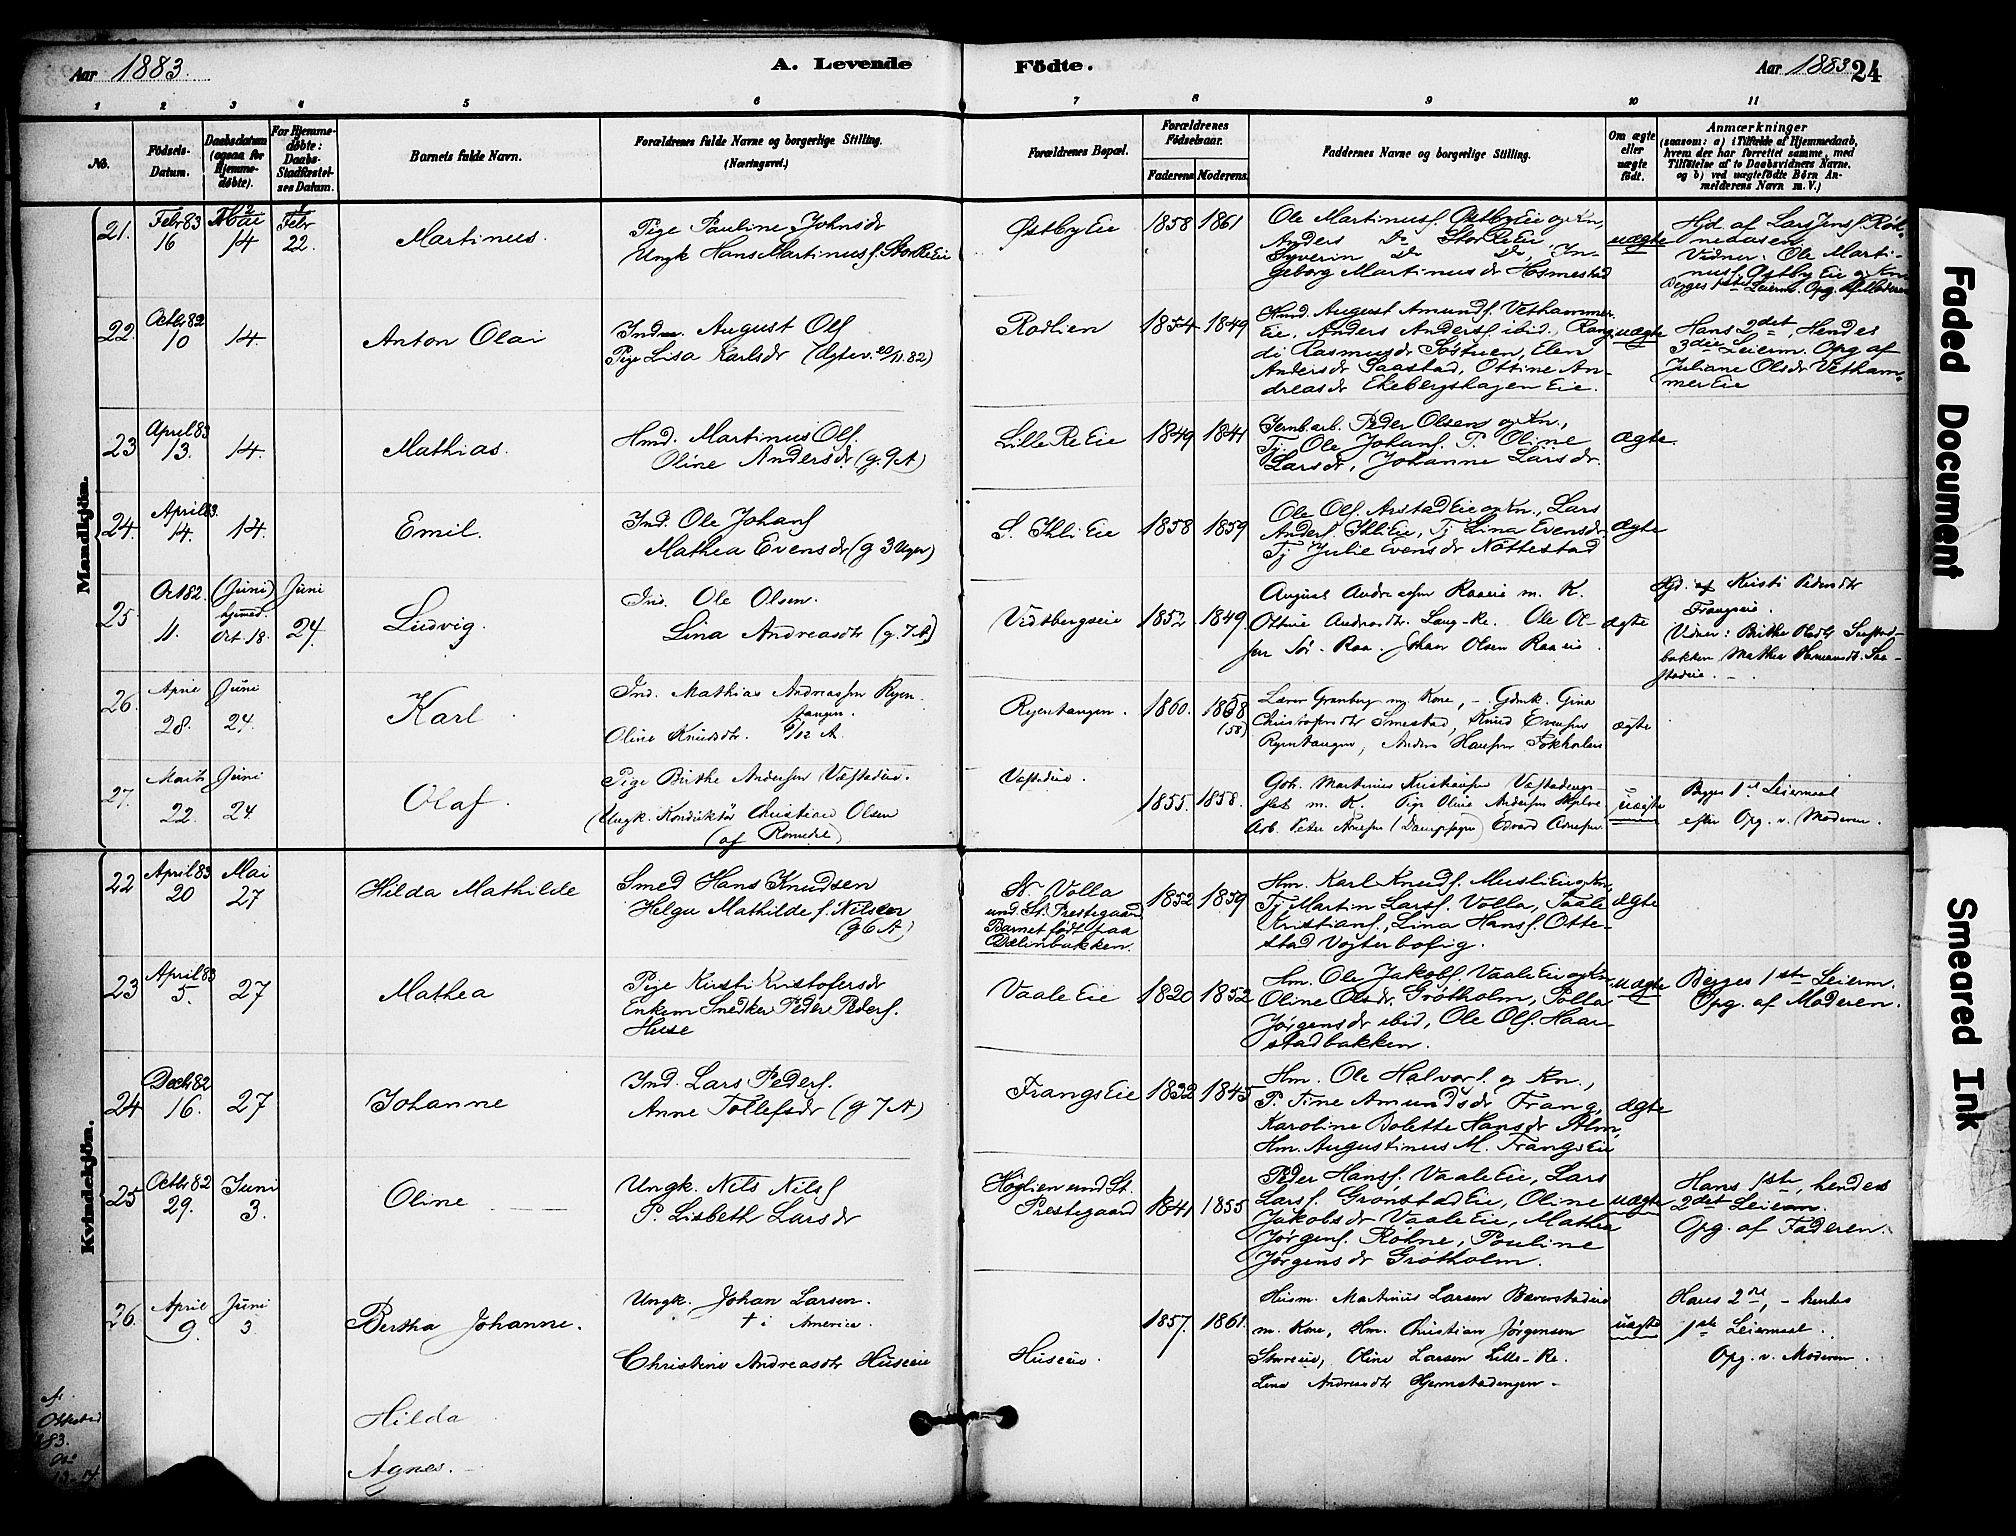 Aar 1883.
A. Levende
Födte.
Aar 1883
24
1 2 3 4 5 6 7 8 9 10 11
No.
Födsels-
Datum.
Daabsdatum
(ogsaa for
Hjemme-
døbte).
For Hjemme-
døbte:
Daabs-
Stadfæstel-
ses Datum.
Barnets fulde Navn.
Forældrenes fulde Navne og borgerlige Stilling.
(Næringsvei.)
Forældrenes Bopæl.
Forældrenes
Födselsaar.
Faderens
Moderens.
Faddernes Navne og borgerlige Stilling.
Om ægte
eller
uægte
født.
Anmærkninger
(saasom: a) i Tilfælde af Hjemmedaab,
hvem der har forrettet samme, med
Tilføielse af to Daabsvidners Navne,
og b) ved uægtefødte Börn An-
melderens Navn m. V.)
Mandkjön.
21. Febr 83
16
Mai
14
Febr
22.
Martinus.
Pige Pauline Johnsdr
Ungk Hans Martinus f. StorReEie
Østby Eie
1858 1861
Ole Martinus f. Østby Eie og Kn,
Anders Do StorReEie,
Syverin Do Do, In-
geborg Martinusdr Hosmestad
uægte
Hjd. af Lars Jensf. Røh-
neaasen.
Vidner: Ole Marti-
nusf. Østby Eie og Kn.
Begges 1ste Leierm. Opg. af Moderen
22. Octbr 82
10
14.
Anton Olai
Indm. August Olsf
Pige Lisa Karlsdr (Ægtev. 20/11.82)
Rodlien
1854 1849
Husmd. August Amundsf. Vethammer
Eie. Anders Andersf. ibid., Rang
di Rasmusdr Søstuen, Elen
Andersdr Saastad, Ottine An-
dreasdr Ekebergshagen Eie.
uægte
Hans 2det, Hendes
3die Leierm. Opg af
Juliane Olsdr Vetham-
mer Eie
23 April 83
13.
14.
Mathias.
Hmd. Martinus Olsf.
Oline Andersdr (g. 9 A)
Lille Re Eie
1849 1841
Jernb.arb. Peder Olsen og Kn.,
Tj. Ole Johans f. P. Oline
Larsdr, Johanne Larsdr.
ægte.
24. April 83.
14.
14.
Emil.
Ind. Ole Johansf
Mathea Evensdr (g 3 Uger)
S. Ihli Eie
1858 1859
Ole Olsf. Arstad Eie og Kn., Lars
Andersf. Ihli Eie, Tj Lina Evensdr
Tj Julie Evensdr Nøttestad
ægte
25. Oct 82.
11.
(Juni)
hjemmed.
Oct. 18.
Juni
24.
Ludvig.
Ind. Ole Olsen.
Lina Andreasdtr (g. 7 A)
Vidtbergseie
1852 1849.
August Andreassen Raaeie m. K.
Ottine Andreasdtr. Laug-Re. Ole Ol-
sen Sør-Raa. Johan Olsen Raaeie
ægte
Hjd. af Kirsti Pedersdtr
Frangseie.
Vidner: Birthe Olsdtr Saastad-
bakken Mathea
stadeie.
26. April
28.
Juni
24.
Karl
Ind. Mathias Andreassen Ryen-
tangen.
Oline Knudsdtr. 6/12 A.
Ryentangen.
1860. 1858
(58)
Lærer Granberg og Kone, - Gdmk. Gina
Christophersdtr Smestad, Knud Evensen
Ryentangen, Anders Hansen Fokholen
ægte
27. Marts
22.
Juni
24.
Olaf.
Pige Birthe Andersen Væstadeie.
(Ungk. Konduktør Christian Olsen
(af Romedal)
Væstadeie.
1855. 1858.
Gbh. Martinus Kristiansen Væstadengs-
m. K. Pige Oline Andersen
Arb. Peter Arnesen (Dampsagen) Edvard Arnesen.
uægte
Begges 1st Leiermaal
efter Opg. v. Moderen.
Kvindekjön.
22 April 83
20
Mai
27
Hilda Mathilde
Smed Hans Knudsen
Helga Mathilde f. Nilsen
(g 6 A)
N. Volla
und. St. Prestegaard
Barnet født paa
Dælinbakken.
1852 1859
Hm. Karl Knudsf. Musli Eie og Kn,
Tj Martin Larsf. Volla, Taale
Kristiansf., Lina Hansf. Otte-
stad Vogterbolig.
ægte
23 April 83
5.
27
Mathea
Pige Kirsti Kristofersdr
Enkem Snedker Peder Pedersf.
Huse
Vaale Eie
1820 1852
Hm. Ole Jakobsf. Vaale Eie og Kn
Oline Olsdr. Grøtholm, Polla
Jørgensdr ibid, Ole Olsf. Haar-
stadbakken.
uægte
Begges 1ste Leierm.
Opg. af Moderen.
24 Decbr 82
16.
27
Johanne
Ind. Lars Pedersf.
Anne Tollefsdr (g 7 A)
Frangs Eie
1832 1845
Hm. Ole Halvorsf. og Kn.,
P. Tine Amundsdr Frang,
Karoline Bolette Hansdr Alm,
Hm. Augustinus M. Frangs Eie
ægte
25 Octbr 82
29.
Juni
3.
Oline
Ungk. Nils Nilsf
P. Lisbeth Larsdr
Høglien und St.
Prestegaard
1841 1855
Peder Hansf. Vaale Eie, Lars
Larsf. Grønstad Eie, Oline
Jakobsdr Vaale Eie, Mathea
Jørgensf. Røhne, Pouline
Jørgensdr Grøtholm.
uægte
Hans 1ste, hendes
2det Leierm.
Opg. af Faderen.
26. April
9.
Juni
3
Bertha Johanne.
Ungk. Johan Larsen.
† i America.
Christine Andreasdtr Huseeie
Huseeie.
1857. 1861.
Husm. Martinus Larsen Baverstadeie
m. Kone, Hm. Christian Jørgensen
Oline Larsen Lille-Re.
Lina Andreasdtr Hjermstadengen.
uægte
Hans 2det, - hendes
1ste Leiermaal.
Opg. v. Moderen.
Hilda
Agnes.
Faded Document
Smeared Ink